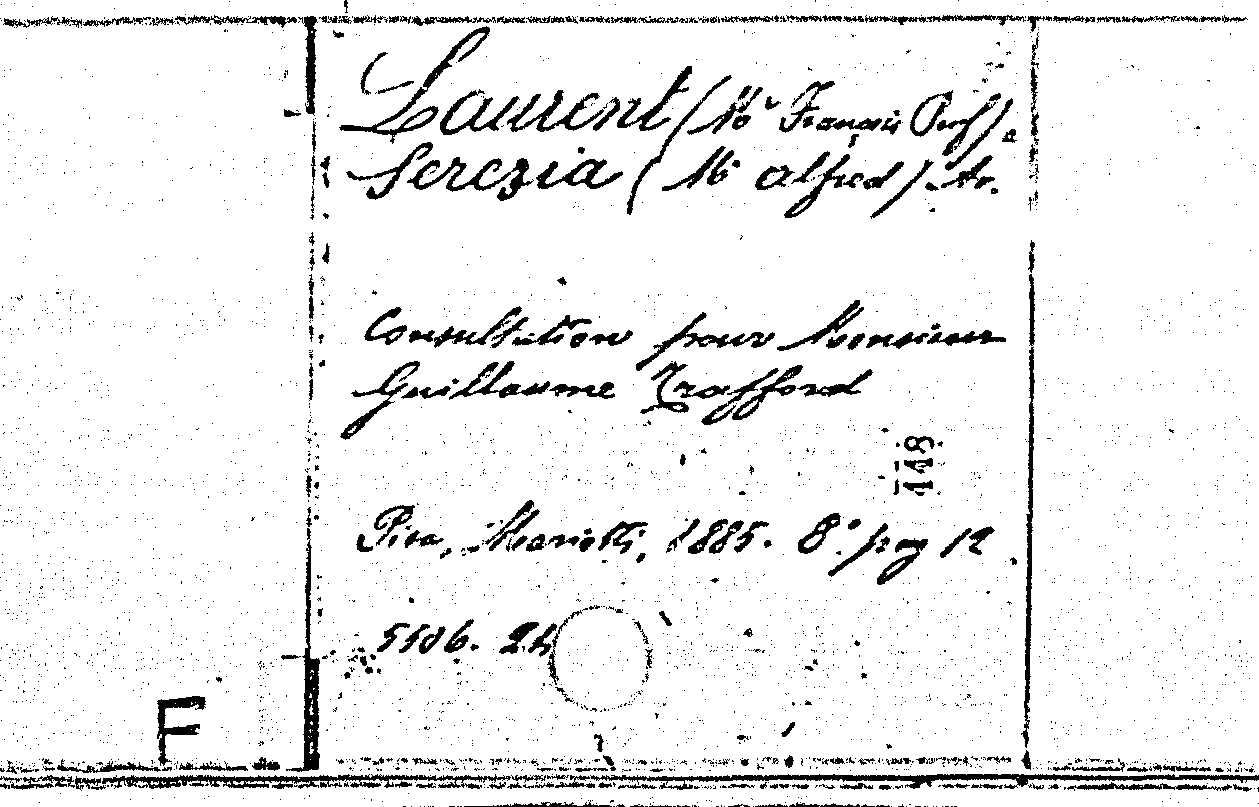 Laurent (Mr Français Prof).
Serezia (Mr Alfred) Av.
Consultation pour Monsieur
Guillaume Trafford
148
Pisa, Mariotti, 1885. 8º pag 12
5506. 24
F